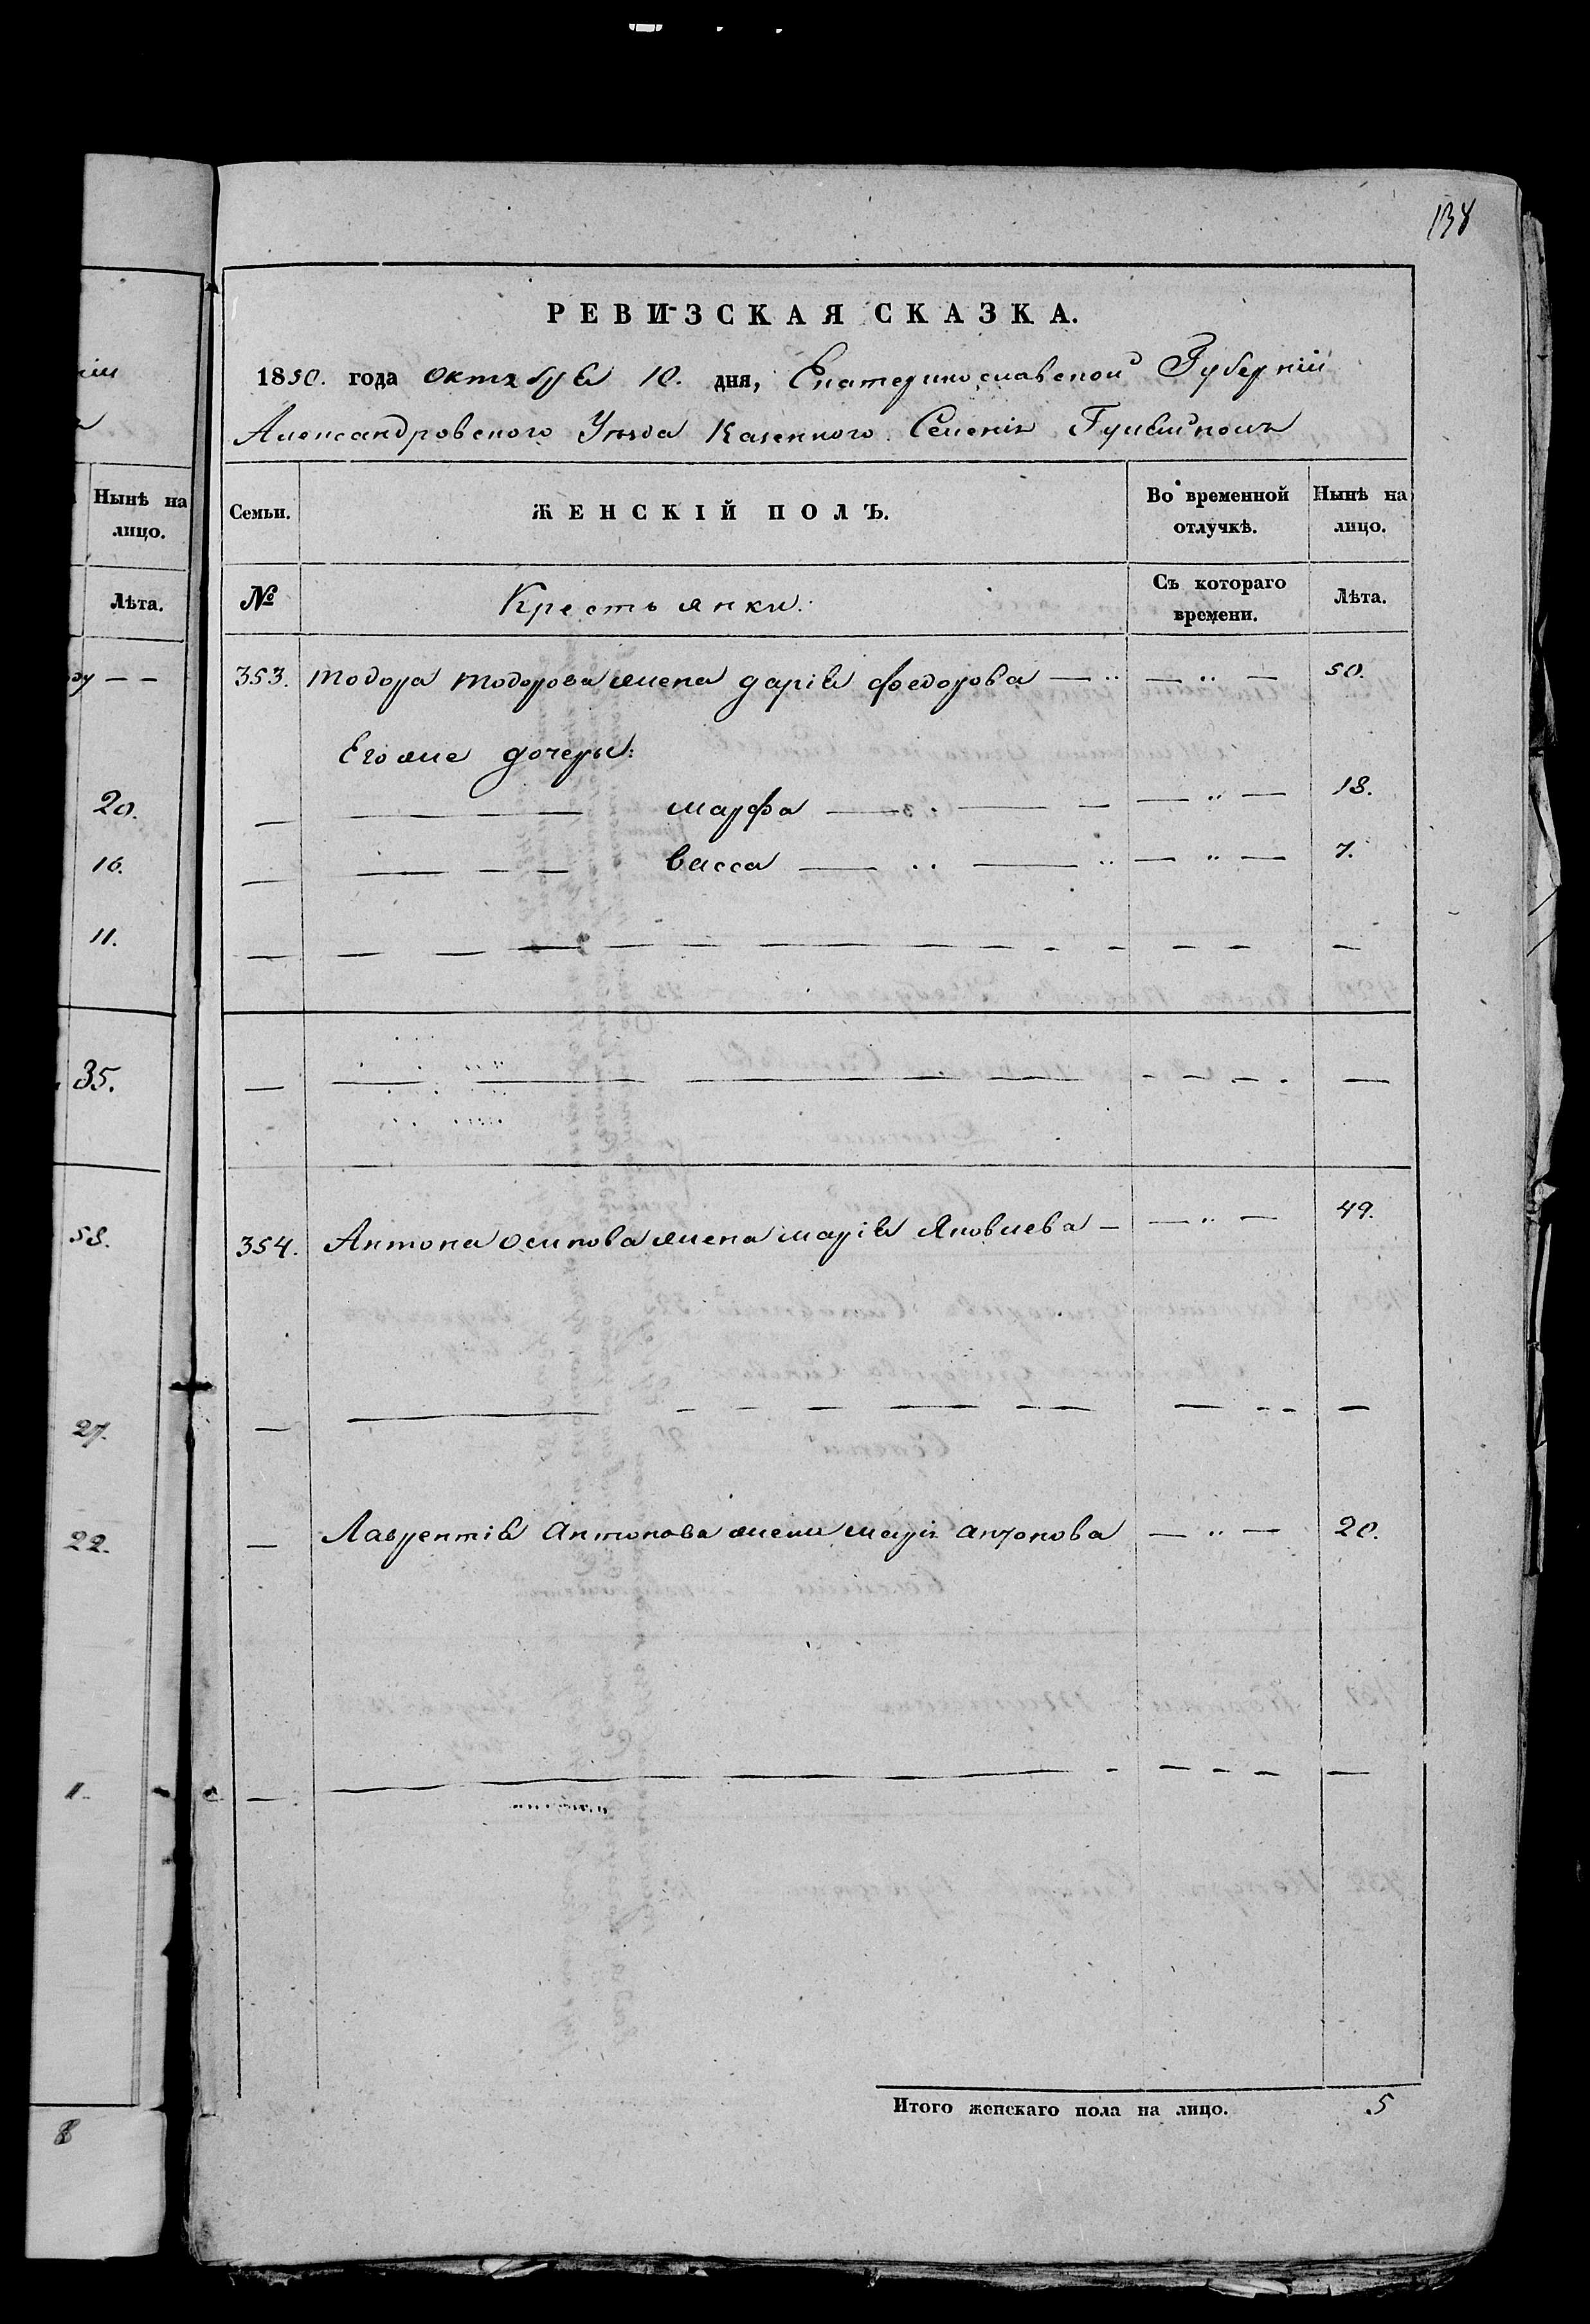 138
РЕВИЗСКАЯ СКАЗКА.
1850. года октября 10. дня, Екатеринославской Губерніи
Александровского Уезда Казенного Селенія Гуляйполя
Семьи. ЖЕНСКІЙ ПОЛЪ. Во временной отлучкѣ. Нынѣ на лицо.
№ Крестьянки. Съ котораго времени. Лѣта.
353. тодора тодорова жена дарія федорова — 50.
Егоже дочеры:
марфа — 18.
васса — 7.
354. Антона осипова жена марія Яковлева — 49.
Лаврентія антонова жена марія антонова — 20.
Итого женскаго пола на лицо. 5
Нынѣ на лицо.
Лѣта.
20.
16.
11.
35.
58.
27.
22.
1.
8